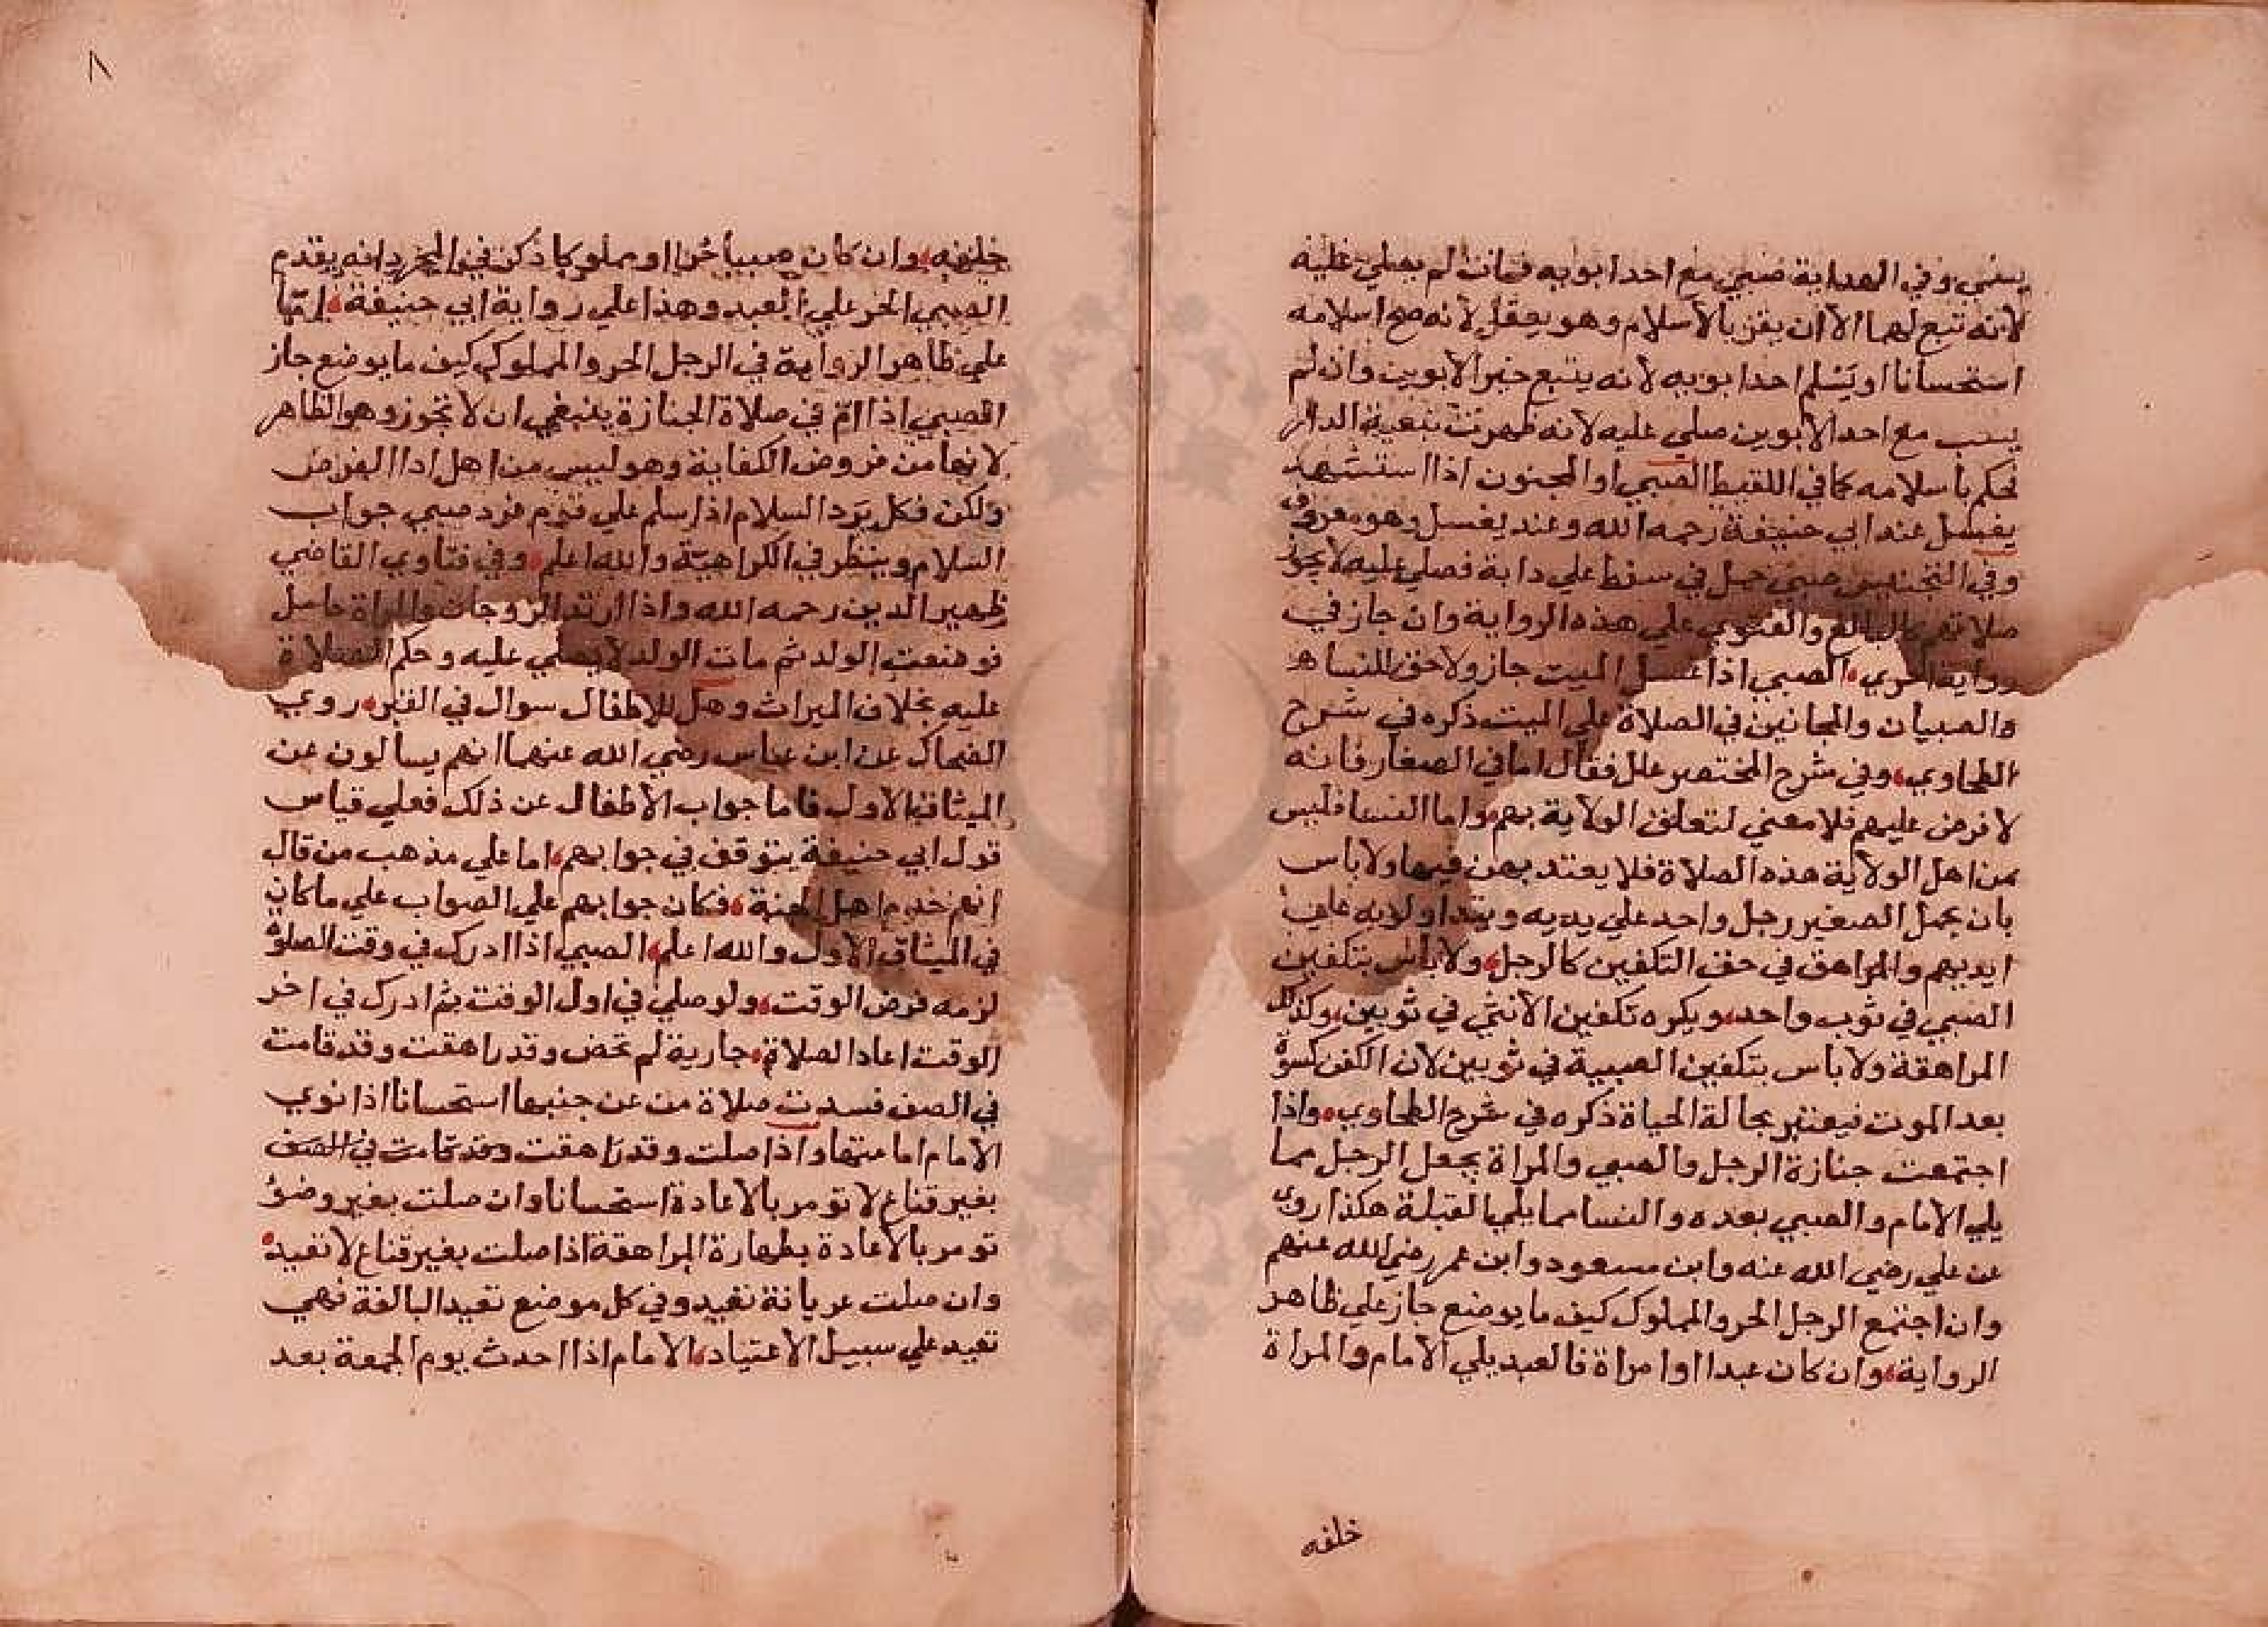 يسفي وفي الهداية صبي مع احد ابويه فمات لم يصلي عليه
لانه تبع لهما الا ان يقر بالاسلام وهو يعقل لانه صح اسلامه
استحسانا او يسلم احد ابويه لانه يتبع خير الابوين وان لم
يسب مع احد الابوين صلي عليه لانه ظهرت تبعية الدار
فحكم باسلامه كما في اللقيط الصبي او المجنون اذا استشهد
يغسل عند ابي حنيفة رحمه الله وعند يغسل وهو معروف
وفي التجنيس صبي حمل في سفط علي دابة فصلي عليه لا يجوز
صلاتهم والفتوي علي هذه الرواية وان جاز في
رواية اخري الصبي اذا غسل الميت جاز ولا حق للنسا
والصبيان والمجانين في الصلاة علي الميت ذكره في شرح
الطحاوي وفي شرح المختصر علل فقال اما في الصغار فانه
لا فرض عليهم فلا معني لتعلق الولاية بهم واما النسا فليس
من اهل الولاية هذه الصلاة فلا يعتد بهن فيها ولا باس
بان يحمل الصغير رجل واحد علي يديه ويتداولانه علي
ايديهم والمراهق في حق التكفين كالرجل ولا باس بتكفين
الصبي في ثوب واحد ويكره تكفين الانثي في ثوبين وكذلك
المراهقة ولا باس بتكفين الصبية في ثوبين لان الكفن كسوة
بعد الموت فيعتبر بحالة الحياة ذكره في شرح الطحاوي واذا
اجتمعت جنازة الرجل والصبي والمراة يجعل الرجل مما
يلي الامام والصبي بعده والنسا مما يلي القبلة هكذا روي
عن علي رضي الله عنه وابن مسعود وابن عمر رضي الله عنهم
وان اجتمع الرجل الحر والمملوك كيف ما يوضع جاز علي ظاهر
الرواية وان كان عبدا او امراة فالعبد يلي الامام والمراة
خلفه
٨
خلفه وان كان صبيا حرا او مملوكا ذكر في المجرد انه يقدم
الصبي الحر علي العبد وهذا علي رواية ابي حنيفة اما
علي ظاهر الرواية في الرجل الحر والمملوك كيف ما يوضع جاز
الصبي اذا ام في صلاة الجنازة ينبغي ان لا تجوز وهو الظاهر
لانها من فروض الكفاية وهو ليس من اهل ادا الفرض
ولكن فكل يرد السلام اذا سلم علي قوم فرد صبي جواب
السلام وينظر في الكراهية والله اعلم وفي فتاوي القاضي
ظهير الدين رحمه الله واذا ارتد الزوجان والمراة حامل
فوضعت الولد ثم مات الولد لا يصلي عليه وحكم الصلاة
عليه بخلاف الميراث وهل للاطفال سوال في القبر روي
الضحاك عن ابن عباس رضي الله عنهما انهم يسالون عن
الميثاق الاول فاما جواب الاطفال عن ذلك فعلي قياس
قول ابي حنيفة يتوقف في جوابهم اما علي مذهب من قال
انهم خدم اهل الجنة فكان جوابهم علي الصواب علي ما كان
في الميثاق الاول والله اعلم الصبي اذا ادرك في وقت الصلوة
لزمه فرض الوقت ولو صلي في اول الوقت ثم ادرك في اخر
الوقت اعاد الصلاة جارية لم تحض وقد راهقت وقد قامت
في الصف فسدت صلاة من عن جنبها استحسانا اذا نوي
الامام امامتها واذا صلت وقد راهقت وقد قامت في الصف
بغير قناع لا تومر بالاعادة استحسانا وان صلت بغير وضوء
تومر بالاعادة بطهارة المراهقة اذا صلت بغير قناع لا تعيد
وان صلت عريانة تعيد وفي كل موضع تعيد البالغة فهي
تعيد علي سبيل الاعتياد الامام اذا احدث يوم الجمعة بعد